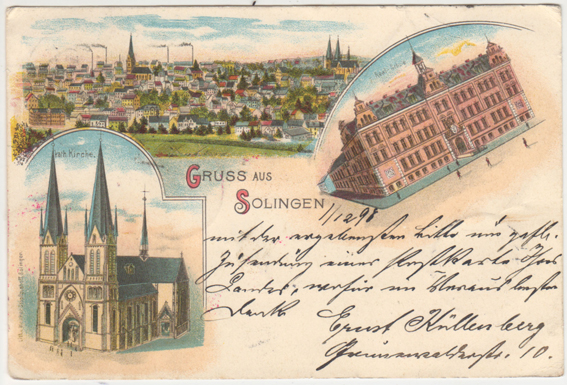 Real-Schule
kath. Kirche.
GRUSS AUS
SOLINGEN
1/12 98
mit der ergebensten Bitte um gefl.
Zusendung einer Postkarte Ihres
Landes, wofür im Voraus besten
Dank
Ernst Küllenberg
Grünewalderstr. 10.